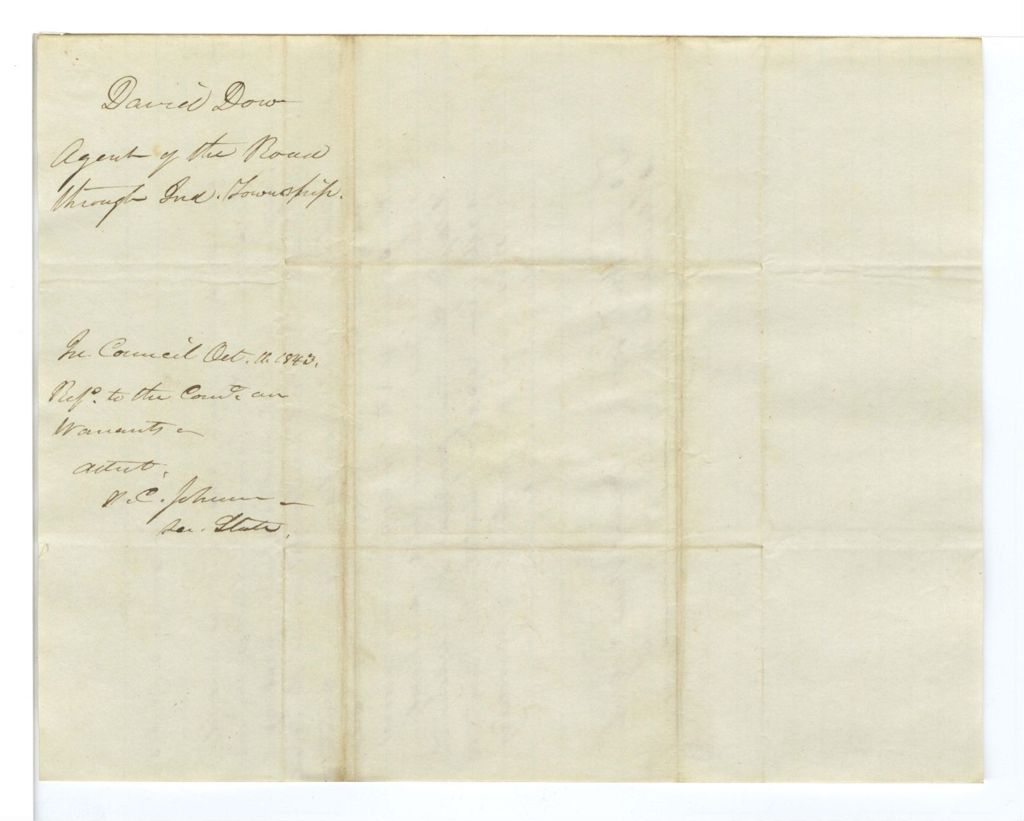 David Dow
Agent of the Road
through Ind. Township.
In Council Oct. 11. 1843.
Refd. to the Come. on
Warrants –
Attest,
P. C. Johnson –
Sec. State.